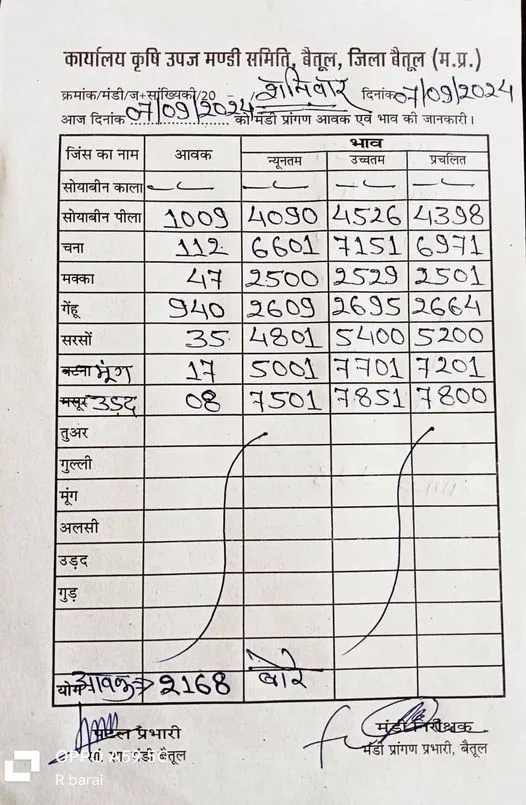 कार्यालय कृषि उपज मण्डी समिति, बैतूल, जिला बैतूल (म.प्र.)
क्रमांक/मंडी/ज+सांख्यिकी/20 शनिवार दिनांक 07/09/2024
आज दिनांक 07/09/2024 को मंडी प्रांगण आवक एवं भाव की जानकारी।
जिंस का नाम आवक भाव
न्यूनतम उच्चतम प्रचलित
सोयाबीन काला
सोयाबीन पीला 1009 4090 4526 4398
चना 112 6601 7151 6971
मक्का 47 2500 2529 2501
गेंहू 940 2609 2695 2664
सरसों 35 4801 5400 5200
बटना मूंग 17 5001 7701 7201
मसूर उड़द 08 7501 7851 7800
तुअर
गुल्ली
मूंग
अलसी
उड़द
गुड़
योग आवक 2168 बोरे
प्रभारी मंडी निरीक्षक
मंडी बैतूल मंडी प्रांगण प्रभारी, बैतूल
OPPO
R barai